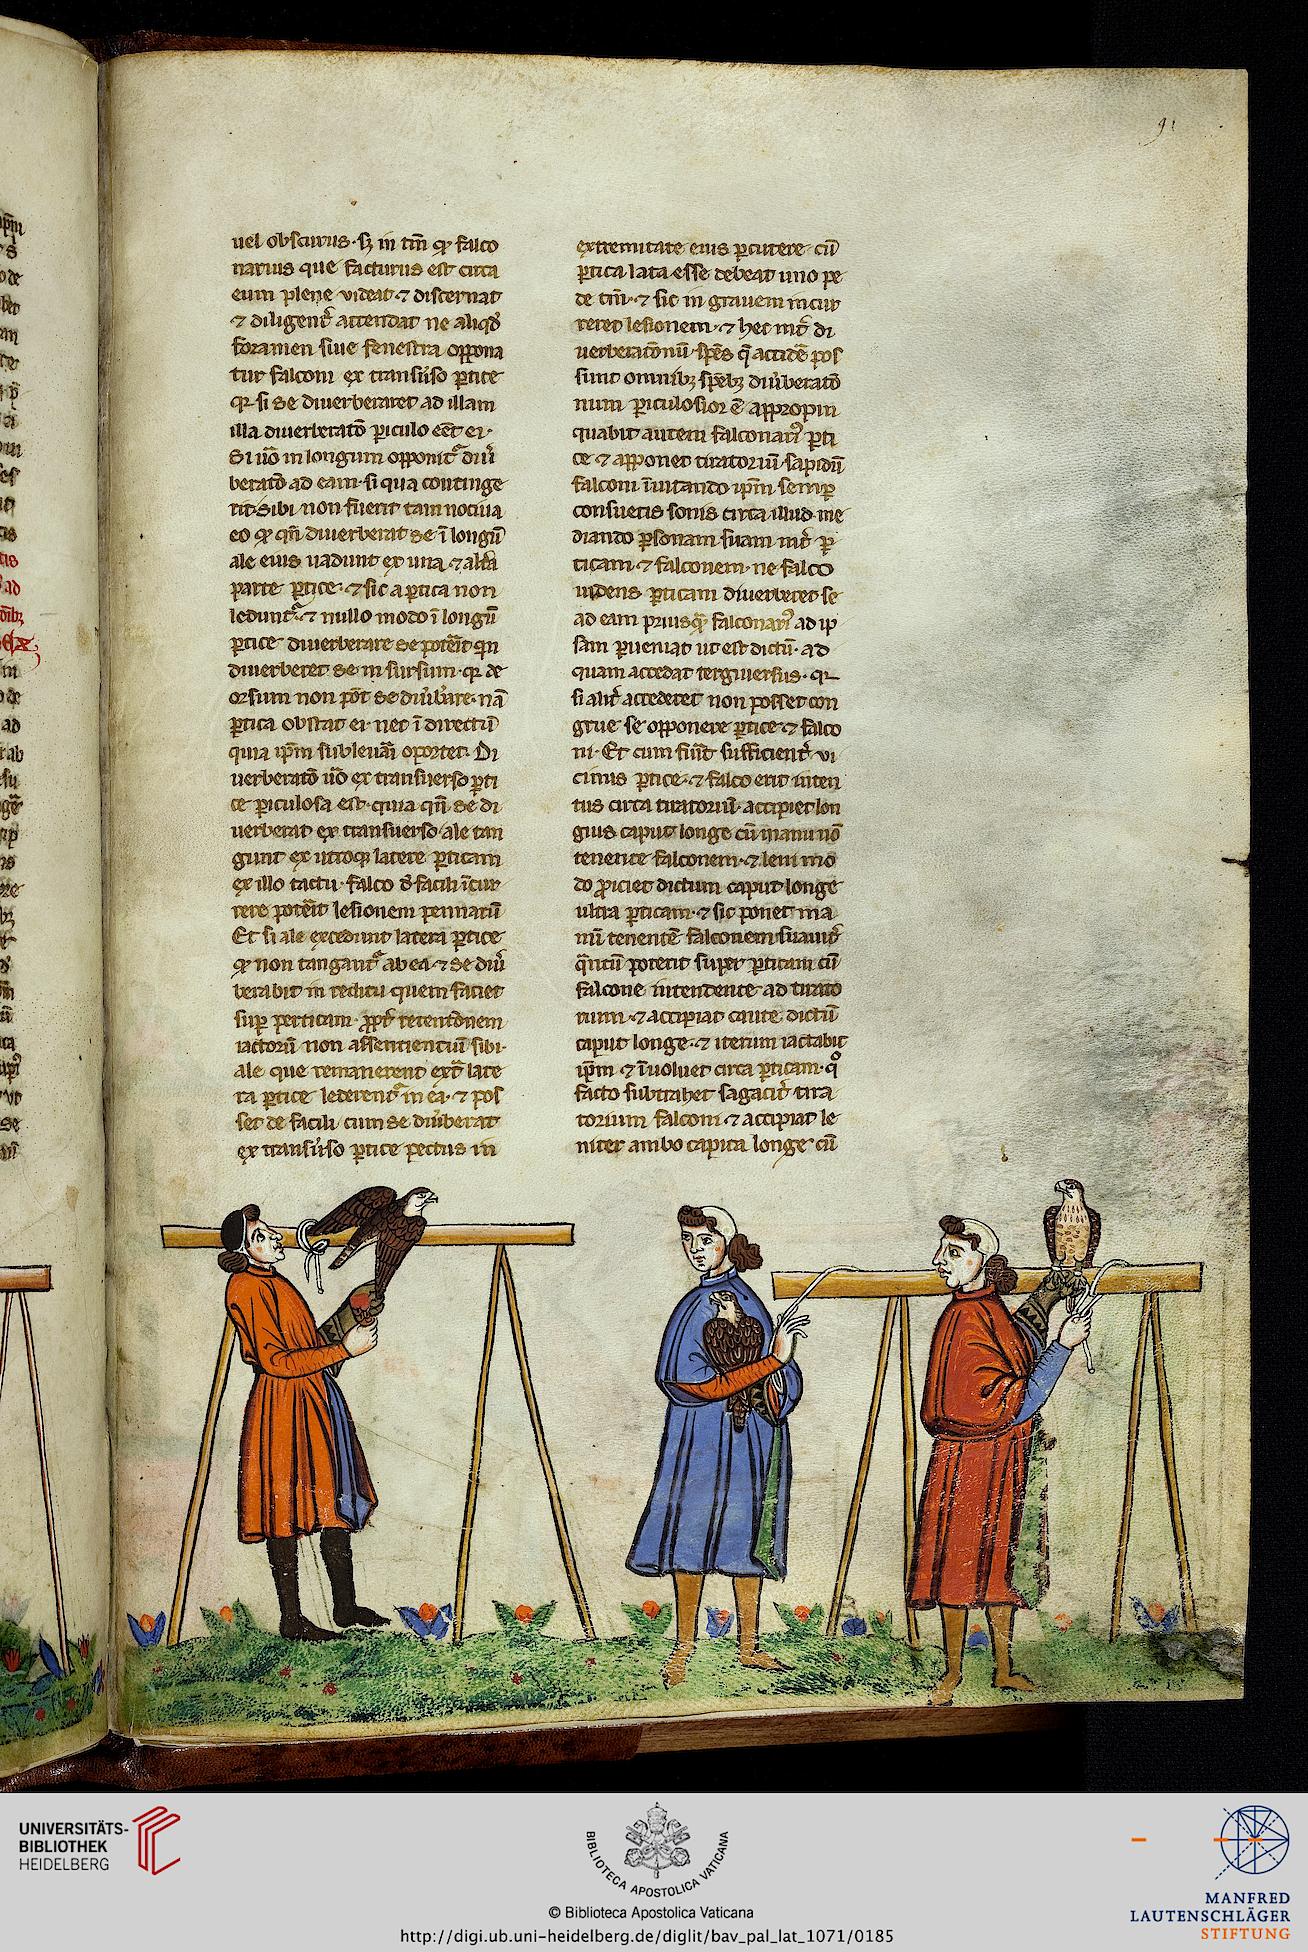 91
uel obscurus· sꝫ in tm̄ ꝙ falco
narius que facturus est circa
eum plene videat· ⁊ discernat
⁊ diligent᷑ attendat ne aliqd̕
foramen siue fenestra oppona
tur falconi ex transu͛so ꝑtice
qr̄ si se diuerberaret ad illam
illa diuerberatō ꝑiculo eēt ei·
Si u̅o in longum opponit᷑ diu͛
beratō ad eam· si qua continge
rit sibi non fuerit tam nociua
eo ꝙ qn̄ diuerberat se ī longū
ale eius uadunt ex una· ⁊ alt͛a
parte ꝑtice· ⁊ sic a ꝑtica non
ledunt᷑· ⁊ nullo modo ī longū
ꝑtice diuerberare se poterit qn̄
diuerberet se in sursum· qr̄ de
orsum non pōt se diu͛b͛are· nā
ꝑtica obstat ei· nec ī directū
quia ip̄m subleuari oportet· Di
uerberatō u̅o ex transuerso ꝑti
ce ꝑiculosa est· quia qn̄ se di
uerberat ex transuerso ale tan
gunt ex utroqꝫ latere ꝑticam
ex illo tactu· falco d̕ facili īcur
rere poterit lesionem pennarū
Et si ale excedunt latera ꝑtice
ꝙ non tangant᷑ ab ea· ⁊ se diu͛
berabit in reditu quem faciet
suꝑ perticam· ꝓpt͛ retentōnem
iactorū non assentientiū sibi·
ale que remanerent ext͛ late
ra ꝑtice lederent᷑ in ea· ⁊ pos
set de facili cum se diu͛berat
ex transu͛so ꝑtice pectus in
extremitate eius ꝑcutere· cū
ꝑtica lata esse debeat uno pe
de tm̄· ⁊ sic in grauem incur
reret lesionem· ⁊ hec int͛ di
uerberatōnū sp̄es q̄ accidē pos
sunt omnibꝫ sp̄ebꝫ diu͛beratō
num ꝑiculosior ē appropin
quabit autem falconari᷒ ꝑti
ce ⁊ apponet tiratoriū sapidū
falconi īuitando ip̄m semꝑ
consuetis sonis circa illud· me
diando ꝑsonam suam int͛ ꝑ
ticam ⁊ falconem· ne falco
uidens ꝑticam diuerberet se
ad eam priusq̄ falconari᷒ ad ip
sam ꝑueniat ut est dictū· ad
quam accedat tergiuersus· qr̄
si alit͛ accederet non posset con
grue se opponere ꝑtice ⁊ falco
ni· Et cum fu͛it sufficient͛ vi
cinus ꝑtice· ⁊ falco erit inten
tus circa tiratoriū· accipiet lon
gius caput longe cū manu nō
tenente falconem· ⁊ leni mo
do ꝓiciet dictum caput longe
ultra ꝑticam· ⁊ sic ponet ma
nū tenentē falconem suauit͛
q̄ntū poterit super ꝑticam cū
falcone intendente ad tirato
rium· ⁊ accipiat caute dictū
caput longe· ⁊ iterum iactabit
ip̄m ⁊ īuoluet circa ꝑticam· qͦ
facto subtrahet sagacit͛ tira
torium falconi ⁊ accipiat le
niter ambo capita longe cū
UNIVERSITÄTS-
BIBLIOTHEK
HEIDELBERG
BIBLIOTECA APOSTOLICA VATICANA
© Biblioteca Apostolica Vaticana
http://digi.ub.uni-heidelberg.de/diglit/bav_pal_lat_1071/0185
MANFRED
LAUTENSCHLÄGER
STIFTUNG